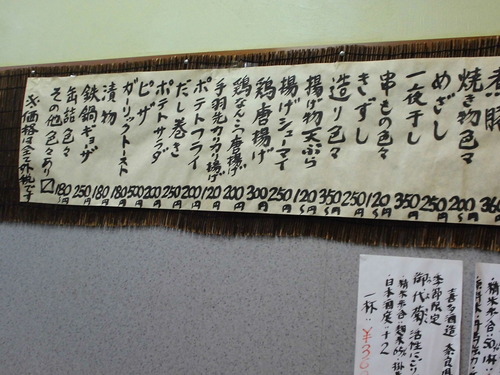 360
焼き物色々 200円~
めざし 250円
一夜干し 350円
串もの色々 120円~
きずし 250円
造り色々 350円~
揚げ物天ぷら 120円~
揚げシューマイ 250円
鶏唐揚げ 300円
鶏なんこつ唐揚げ 200円
手羽先カリカリ揚げ 120円
ポテトフライ 200円
だし巻き 250円
ポテトサラダ 200円
ピザ 500円
ガーリックトースト 180円
漬物 180円
鉄鍋ギョーザ 250円
缶詰色々 180円~
その他色々あり〼
※価格は全て外税です
喜多酒造 奈良県
季節限定
御代菊 活性にごり
・精米歩合:麹米65%
・日本酒度:+2
一杯:¥